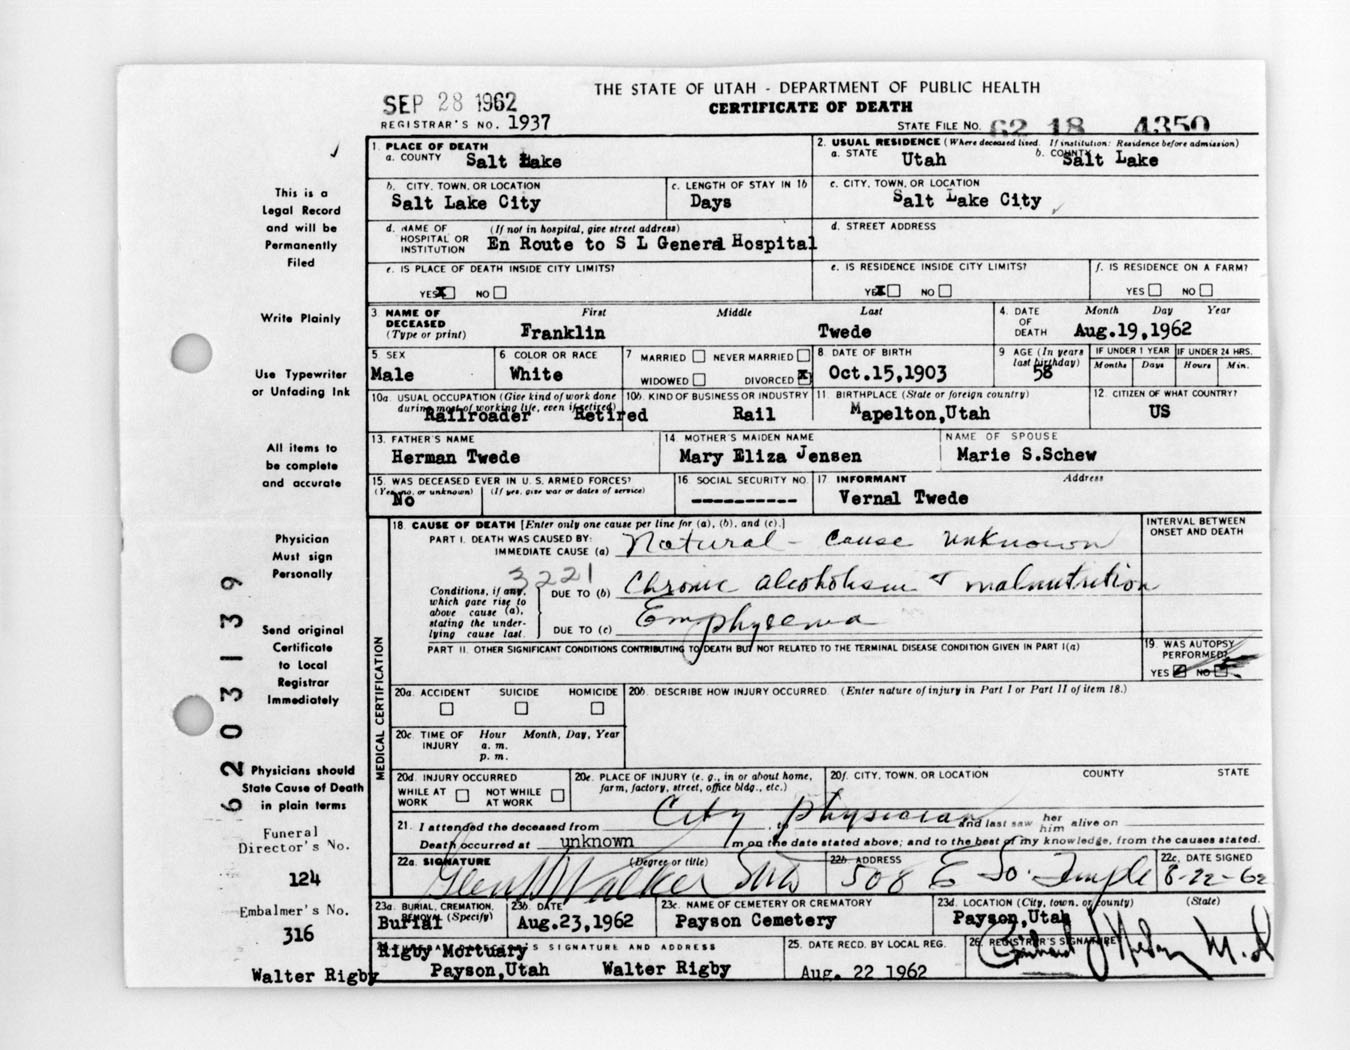 THE STATE OF UTAH - DEPARTMENT OF PUBLIC HEALTH
CERTIFICATE OF DEATH
SEP 28 1962
REGISTRAR'S NO. 1937
STATE FILE NO. 62 18 4350
1. PLACE OF DEATH
a. COUNTY Salt Lake
2. USUAL RESIDENCE (Where deceased lived. If institution: Residence before admission)
a. STATE Utah b. COUNTY Salt Lake
b. CITY, TOWN, OR LOCATION
Salt Lake City
c. LENGTH OF STAY IN 1b
Days
c. CITY, TOWN, OR LOCATION
Salt Lake City
d. NAME OF HOSPITAL OR INSTITUTION (If not in hospital, give street address)
En Route to S L General Hospital
d. STREET ADDRESS
e. IS PLACE OF DEATH INSIDE CITY LIMITS?
YES X NO
e. IS RESIDENCE INSIDE CITY LIMITS?
YES X NO
f. IS RESIDENCE ON A FARM?
YES NO
3. NAME OF DECEASED (Type or print)
First Middle Last
Franklin Twede
4. DATE OF DEATH Month Day Year
Aug.19,1962
5 SEX
Male
6 COLOR OR RACE
White
7 MARRIED NEVER MARRIED
WIDOWED DIVORCED X
8 DATE OF BIRTH
Oct.15,1903
9 AGE (In years last birthday)
58
IF UNDER 1 YEAR IF UNDER 24 HRS.
Months Days Hours Min.
10a. USUAL OCCUPATION (Give kind of work done during most of working life, even if retired)
Railroader Retired
10b. KIND OF BUSINESS OR INDUSTRY
Rail
11 BIRTHPLACE (State or foreign country)
Mapelton,Utah
12 CITIZEN OF WHAT COUNTRY?
US
13. FATHER'S NAME
Herman Twede
14 MOTHER'S MAIDEN NAME
Mary Eliza Jensen
NAME OF SPOUSE
Marie S.Schew
15. WAS DECEASED EVER IN U. S. ARMED FORCES?
(Yes, no, or unknown) (If yes, give war or dates of service)
No
16 SOCIAL SECURITY NO.
----------
17 INFORMANT Address
Vernal Twede
18. CAUSE OF DEATH [Enter only one cause per line for (a), (b), and (c).]
PART I. DEATH WAS CAUSED BY:
IMMEDIATE CAUSE (a) Natural - cause unknown
INTERVAL BETWEEN ONSET AND DEATH
3221
Conditions, if any, which gave rise to above cause (a), stating the underlying cause last.
DUE TO (b) Chronic alcoholism & malnutrition
DUE TO (c) Emphysema
PART II. OTHER SIGNIFICANT CONDITIONS CONTRIBUTING TO DEATH BUT NOT RELATED TO THE TERMINAL DISEASE CONDITION GIVEN IN PART I(a)
19. WAS AUTOPSY PERFORMED?
YES NO
MEDICAL CERTIFICATION
20a. ACCIDENT SUICIDE HOMICIDE
20b. DESCRIBE HOW INJURY OCCURRED. (Enter nature of injury in Part I or Part II of item 18.)
20c. TIME OF INJURY Hour Month, Day, Year
a. m.
p. m.
20d. INJURY OCCURRED
WHILE AT WORK NOT WHILE AT WORK
20e. PLACE OF INJURY (e. g., in or about home, farm, factory, street, office bldg., etc.)
20f. CITY, TOWN, OR LOCATION COUNTY STATE
City Physician
21. I attended the deceased from to and last saw her him alive on
Death occurred at unknown m on the date stated above; and to the best of my knowledge, from the causes stated.
22a. SIGNATURE (Degree or title)
Walker
22b. ADDRESS
508 E So. Temple
22c. DATE SIGNED
8-22-62
23a. BURIAL, CREMATION, REMOVAL (Specify)
Burial
23b. DATE
Aug.23,1962
23c. NAME OF CEMETERY OR CREMATORY
Payson Cemetery
23d. LOCATION (City, town, or county) (State)
Payson,Utah
'S SIGNATURE AND ADDRESS
Rigby Mortuary
Payson,Utah Walter Rigby
25. DATE RECD. BY LOCAL REG.
Aug. 22 1962
26. REGISTRAR'S SIGNATURE
M.D.
This is a
Legal Record
and will be
Permanently
Filed
Write Plainly
Use Typewriter
or Unfading Ink
All items to
be complete
and accurate
Physician
Must sign
Personally
Send original
Certificate
to Local
Registrar
Immediately
Physicians should
State Cause of Death
in plain terms
Funeral
Director's No.
124
Embalmer's No.
316
Walter Rigby
62031139